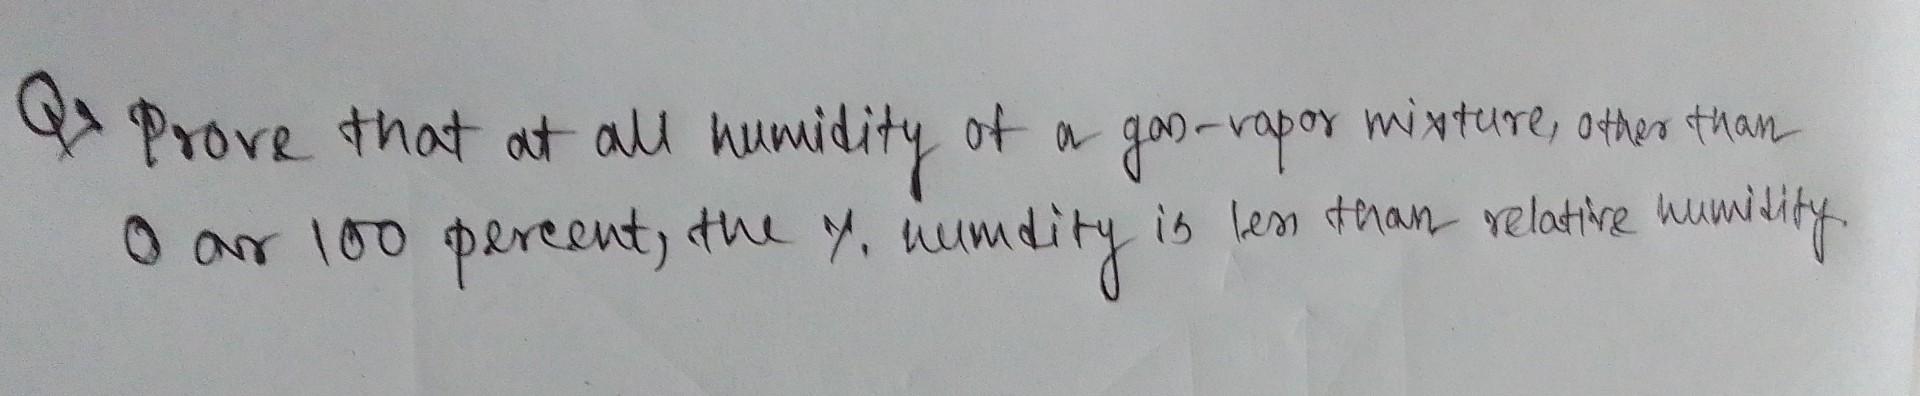 Q> Prove that at all humidity of a gas-vapor mixture, other than
0 or 100 percent, the %. humdity is less than relative humidity.